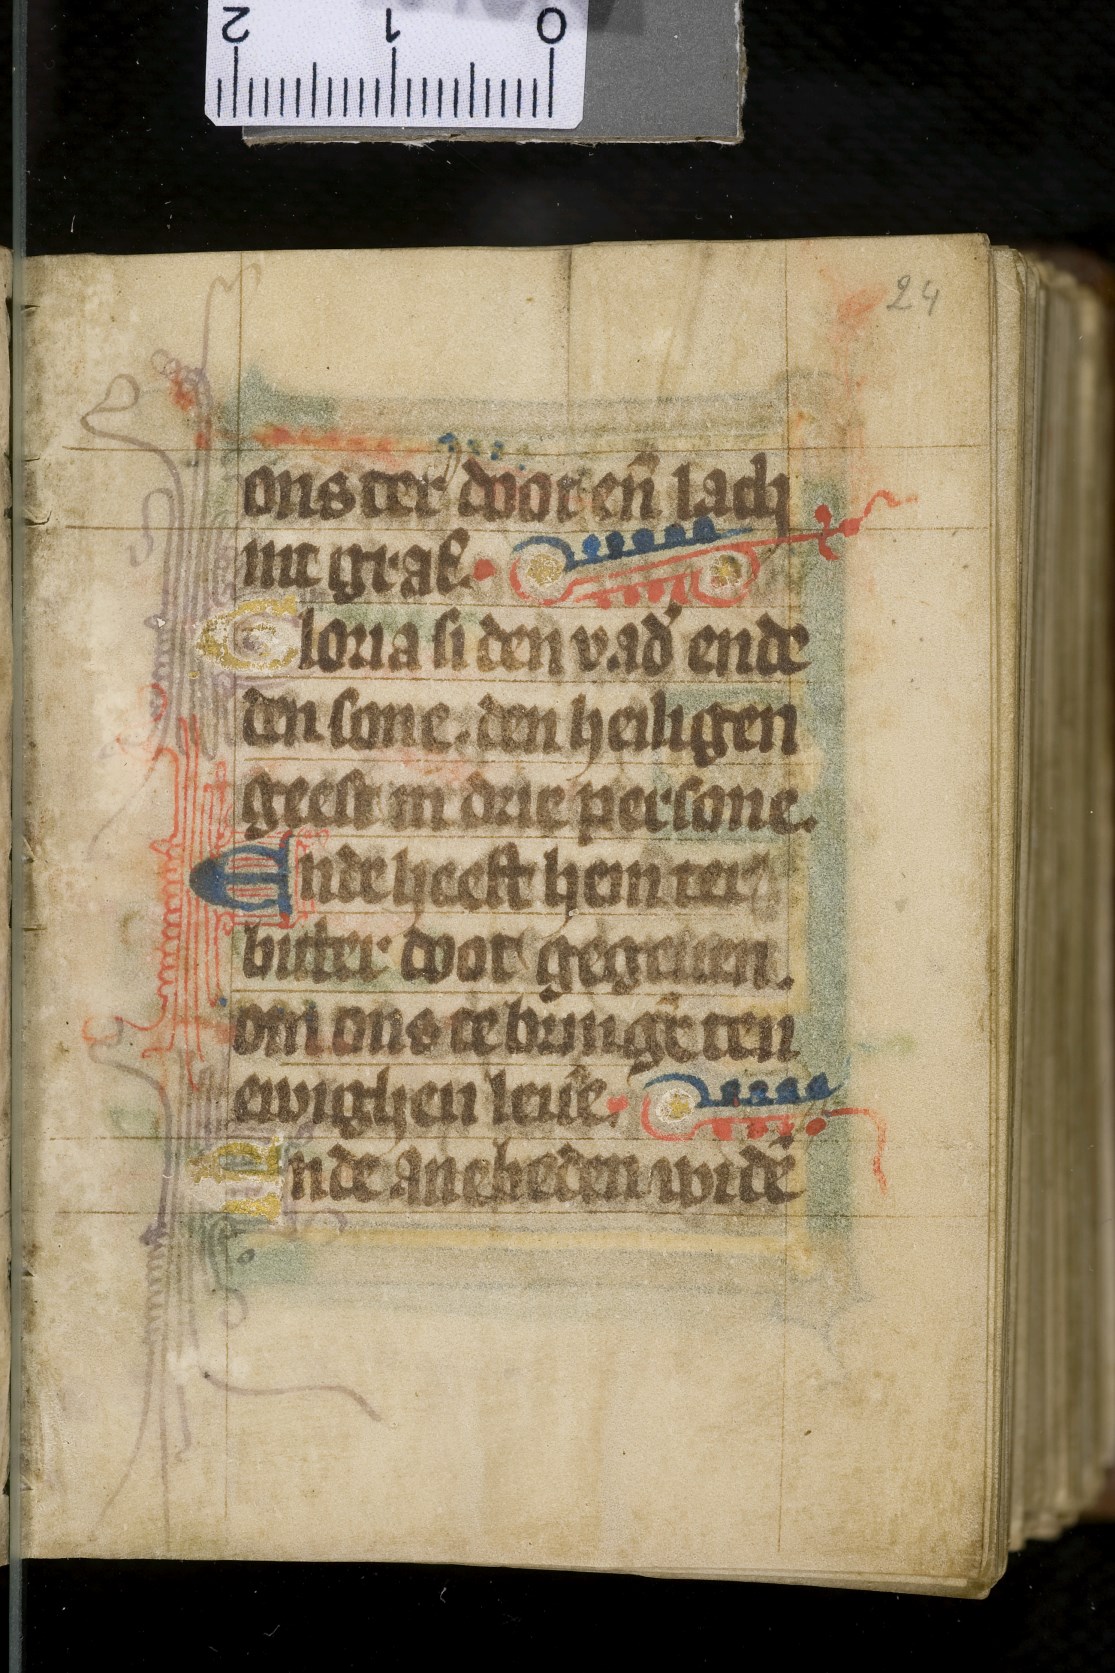 2 1 0
24
ons ter doot en̄ lach
int graf.
Gloria si den vad' ende
den sone. den heiligen
geest in drie persone.
Ende heeft hem ter
bitter doot gegeuen.
om ons te bringē ten
ewighen leuē.
Ende anebeden widē